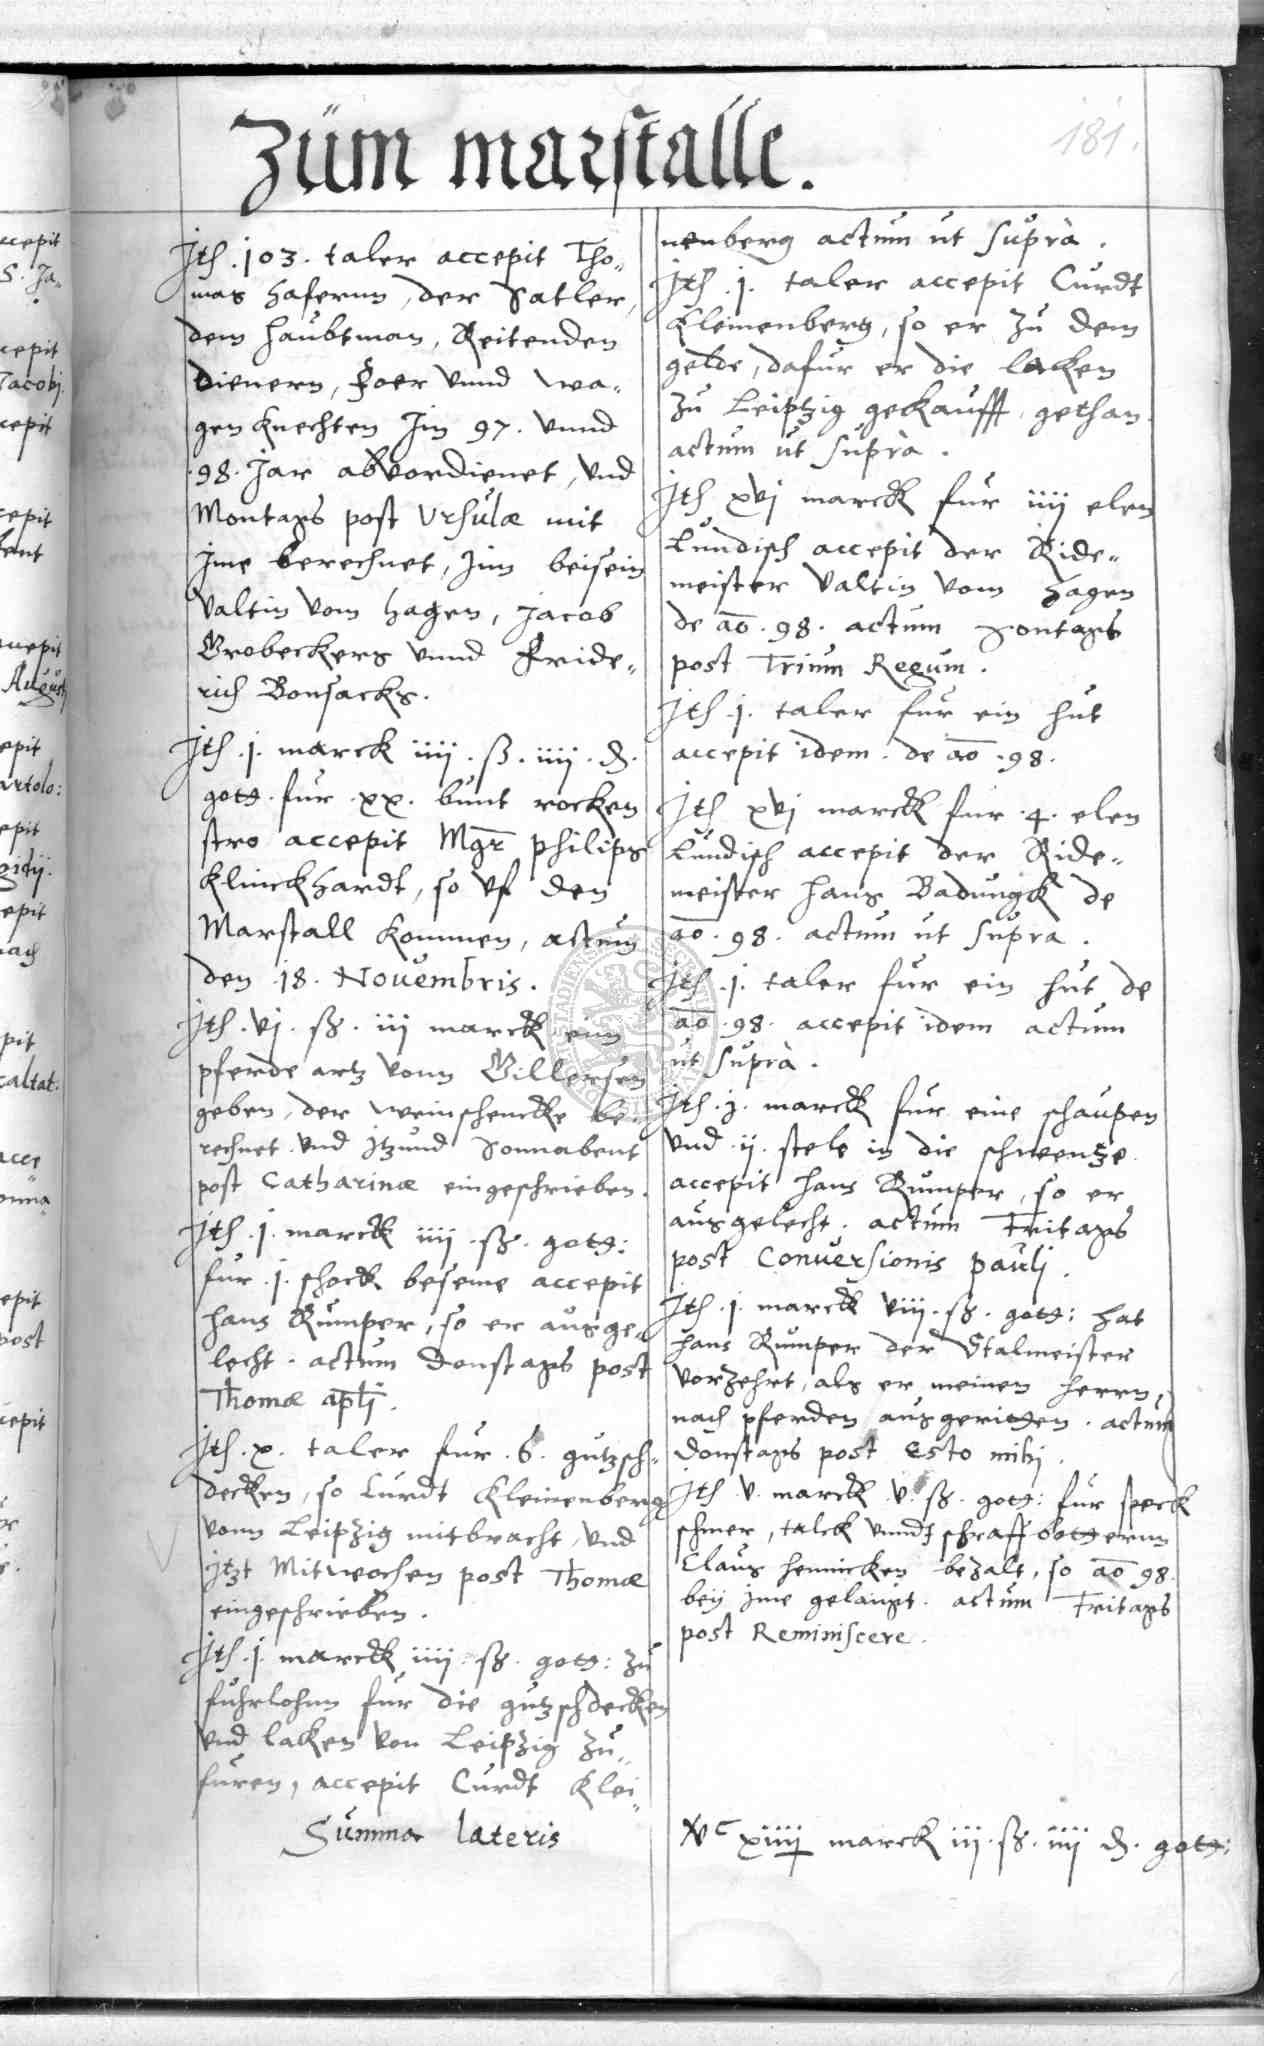 181.
Züm marstalle.
Jth .103. taler accepit Tho„
mas Hafernn, der Satler,
dem haubtman, Reitenden
dienern, foer vnnd wa„
gen knechten Jm 97. vnnd
.98. Jar abvordienet, vnd
Montags post Vrsulæ mit
jme berechnet, Jnn beisein
Valtin vom Hagen, Jacob
Grobeckers vnnd Fride„
rich Bonsacks.
Jth .j. marck iiij. ß. iiij. ₰.
gotg. fur .xx. bunt rocken
stro accepit Mgr̄ philips
Klinckhardt, so vf den
Marstall kommen, actum
den .18. Novembris.
Jth .vj. ß. iij marck einn
pferde artz vonn Gillersen
geben, der weinschencke be„
rechnet vnd itzund Sonnabent
post Catharinæ eingeschrieben.
Jth .j. marck iiij. ß. gotg:
fur .j. schock beseme accepit
Hans Rumper, so er ausge„
lecht. actum Donstags post
Thomæ apli.
Jth .x. taler fur .6. gutzsch„
decken, so Curdt Kleinenberg
vonn Leipzig mitbracht, vnd
jtzt Mitwochen post Thomæ
eingeschrieben.
Jth .j. marck iiij. ß. gotg: zu
fuhrlohnn fur die gutzschdecken
vnd laken von Leipzig zu„
furen, accepit Curdt Klei„
nenberg actum ut supra.
Jth .j. taler accepit Curdt
Kleinenberg, so er zu dem
gelde, dafur er die laken
zu Leiptzig gekaufft, gethan.
actum ut supra.
Jth xvj marck fur iiij elen
Lundisch accepit der Ride„
meister Valtin vom Hagen
de ao. 98. actum Sontags
post Trium Regum.
Jth .j. taler fur ein hut
accepit idem. de ao. 98.
Jth xvj marck fur .4. elen
Lundisch accepit der Ride„
meister Hans Badungk de
ao. 98. actum ut supra.
Jth .j. taler fur ein hut de
ao. 98. accepit idem actum
ut supra.
Jth .j. marck fur eine schaupen
vnd .ij. stele in die schwentze
accepit Hans Rumper, so er
ausgelecht. actum Fritags
post Conversionis pauli.
Jth .j. marck viij. ß. gotg: hat
Hans Rumper der Stalmeister
vorzehrt, als er meinen herrn,
nach pferden ausgeritten. actum
Donstags post Esto mihi.
Jth v. marck .v. ß. gotg: fur speck
schmer, talck vnndt schaff botternn
Claus Hennicken bezalt, so ao 98.
beij jme gelanget. actum Fritags
post Reminiscere.
Summa lateris
xiiij marck iij. ß. iiij ₰. gotg: